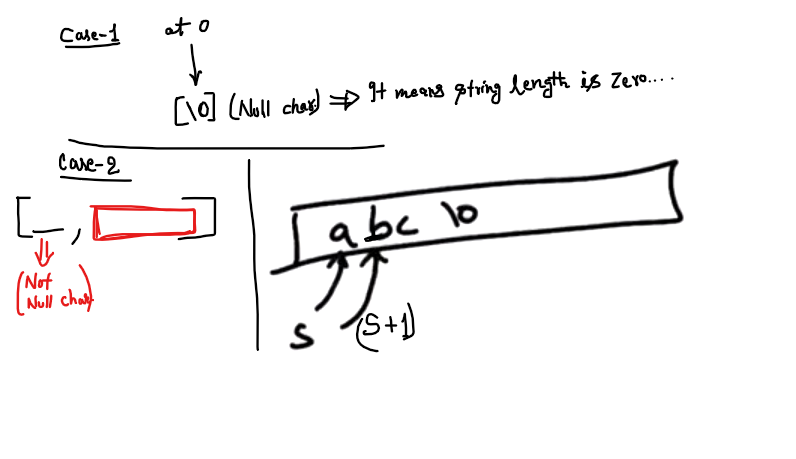 Case-1 at 0
[\0] (Null char) ⇒ It means string length is zero....
Case-2
[_, ]
(Not
Null char)
abc \0
S (S+1)